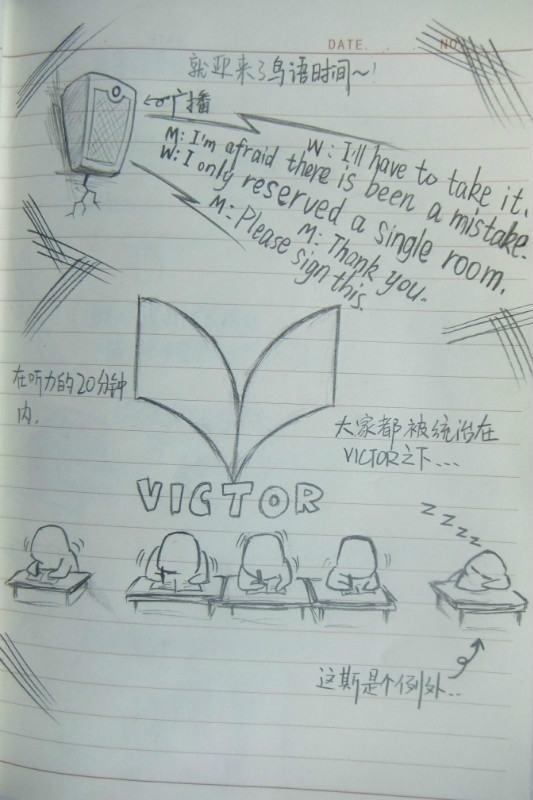 DATE. NO
就迎来了鸟语时间~!
广播
W: I'll have to take it.
M: I'm afraid there is been a mistake.
W: I only reserved a single room.
M: Thank you.
M: Please sign this.
在听力的20分钟
内.
大家都被统治在
VICTOR之下...
VICTOR
ZZZZ
这斯是个例外...